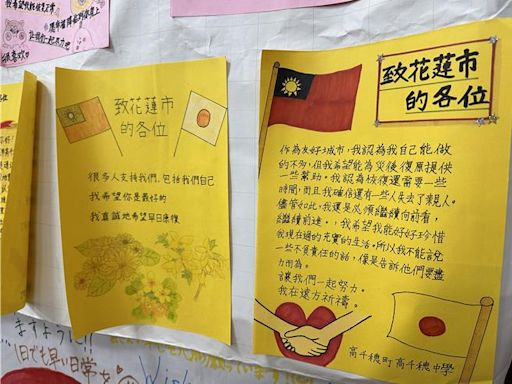 致花蓮市
的各位
很多人支持我們,包括我們自己
我希望你是最好的
我真誠地希望早日康復
致花蓮市
的各位
作為友好城市,我認為我自己能做
的不多,但我希望能為災後復原提供
一些幫助。我認為恢復還需要一些
時間,而且我確信還有一些人失去了親人。
儘管如此,我還是必須繼續向前看,
繼續前進。,我希望我能好好珍惜
我現在過的充實的生活。所以我不能說
一些不負責任的話,像是告訴他們要盡
力而為。
讓我們一起努力。
我在遠方祈禱。
高千穗町高千穗中學
ますように!!
1日でも早い日常を